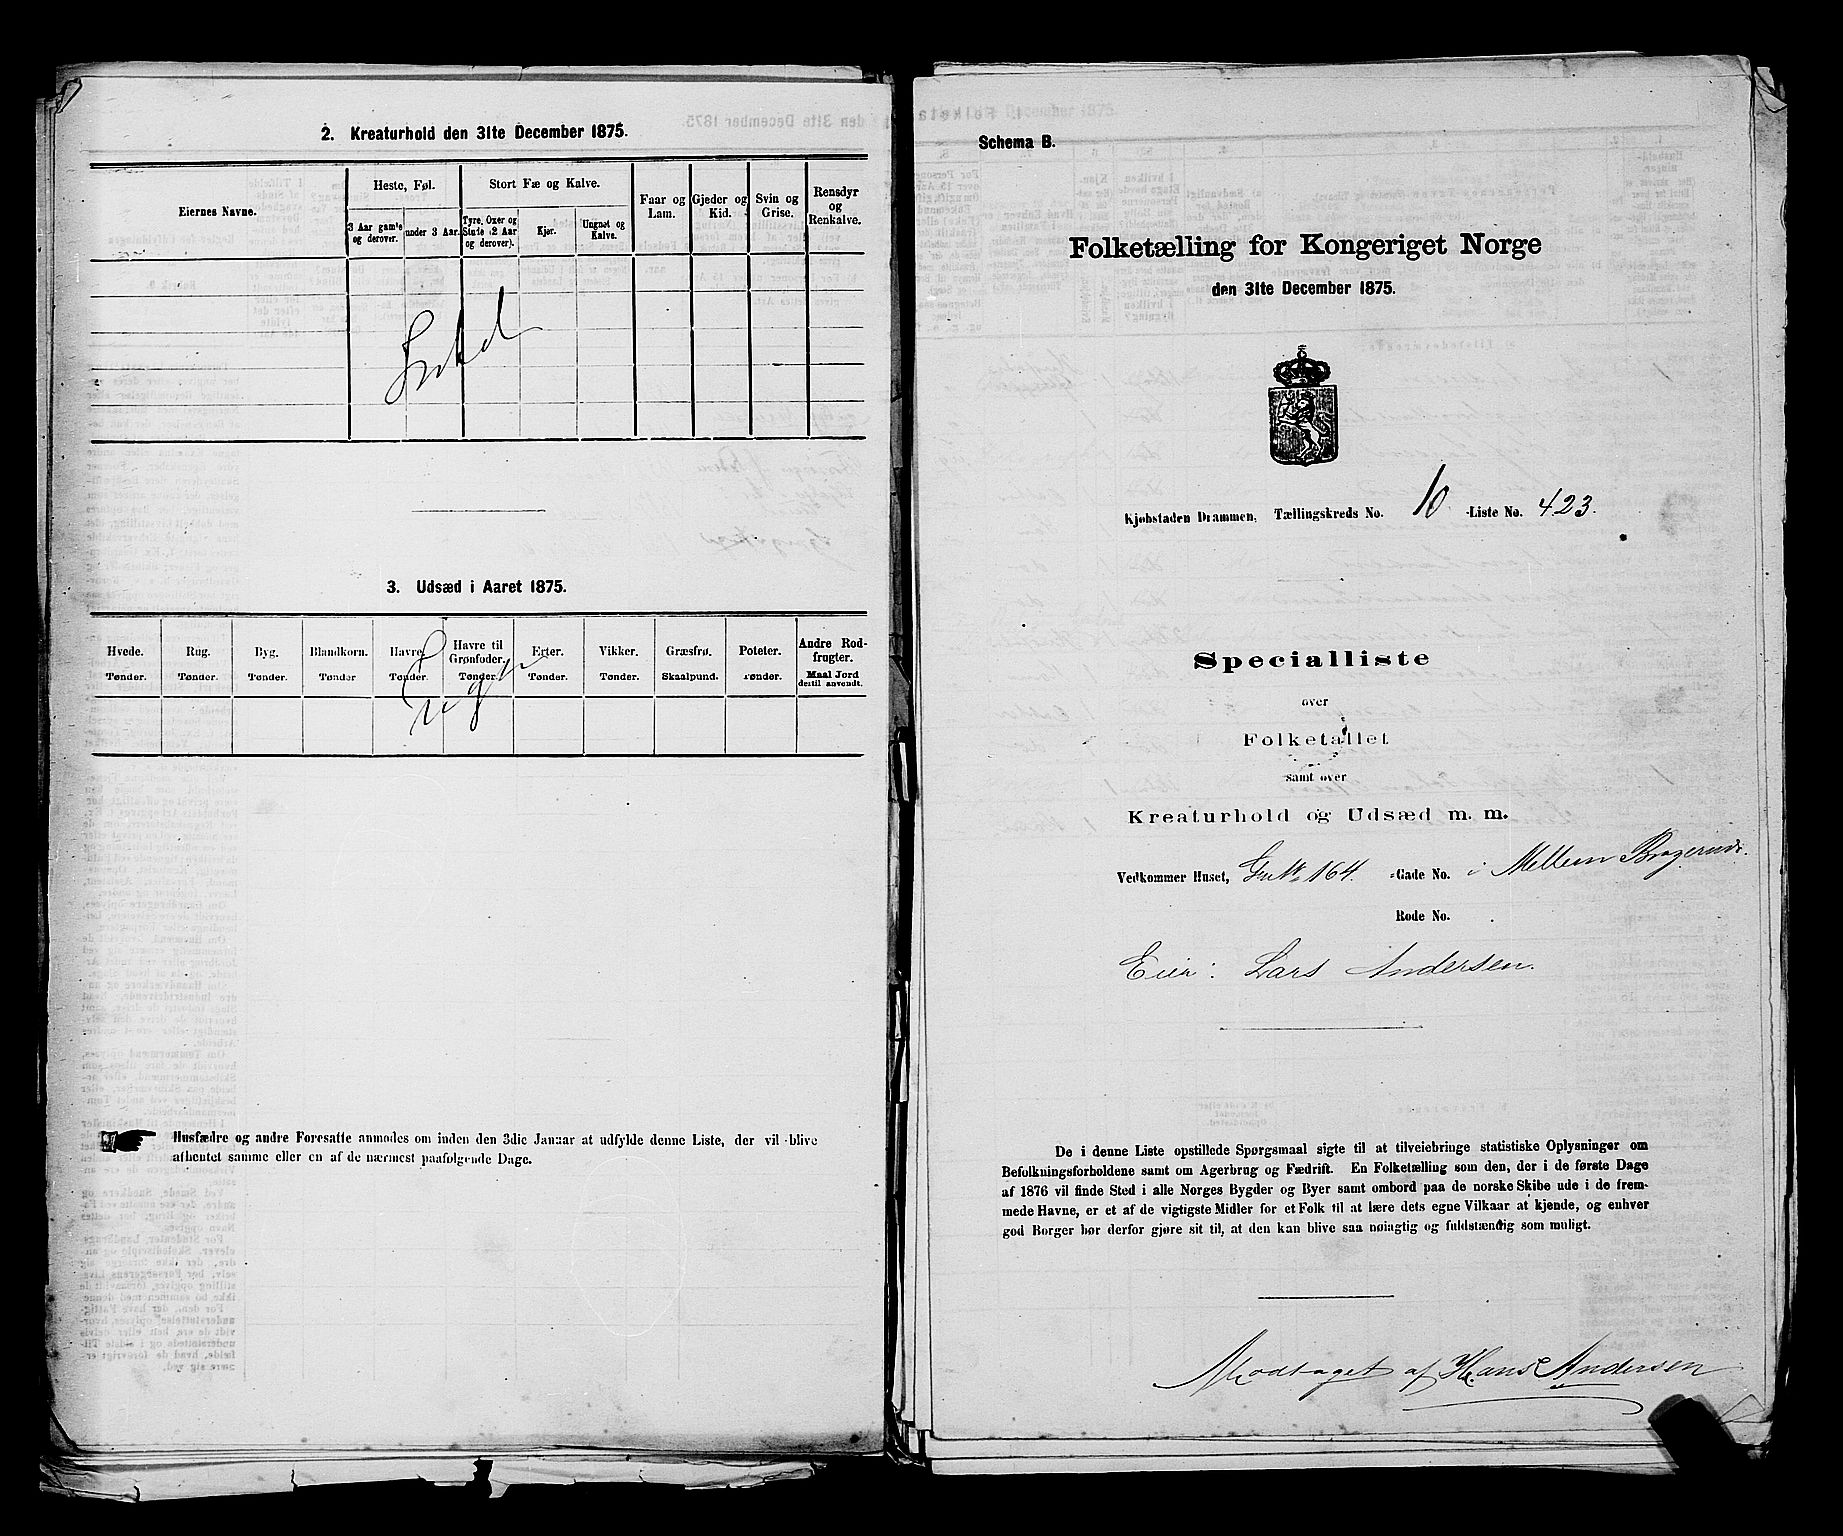 2. Kreaturhold den 31te December 1875.
Eiernes Navne.
Heste, Føl.
Stort Fæ og Kalve.
Faar og Lam.
Gjeder og Kid.
Svin og Grise.
Rensdyr og Renkalve.
3 Aar gamle og derover.
under 3 Aar.
Tyre, Oxer og Stude (2 Aar og derover).
Kjør.
Ungnøt og Kalve.
3. Udsæd i Aaret 1875.
Hvede. Rug. Byg. Blandkorn. Havre. Havre til Grønfoder. Erter. Vikker. Græsfrø. Poteter. Andre Rodfrugter.
Tønder. Tønder. Tønder. Tønder Tønder. Tønder. Tønder. Tønder. Skaalpund. Tønder. Maal Jord dertil anvendt.
Husfædre og andre Foresatte anmodes om inden den 3die Januar at udfylde denne Liste, der vil blive
afhentet samme eller en af de nærmest paafølgende Dage.
Schema B.
Folketælling for Kongeriget Norge
den 31te December 1875.
Kjøbstaden Drammen, Tællingskreds No. 10 Liste No. 423.
Specialliste
over
Folketallet
samt over
Kreaturhold og Udsæd m. m.
Vedkommer Huset, Gr No 164. -Gade No. i Mellem Bragernæs.
Rode No.
Eier: Lars Andersen.
De i denne Liste opstillede Spørgsmaal sigte til at tilveiebringe statistiske Oplysninger om
Befolkningsforholdene samt om Agerbrug og Fædrift. En Folketælling som den, der i de første Dage
af 1876 vil finde Sted i alle Norges Bygder og Byer samt ombord paa de norske Skibe ude i de frem-
mede Havne, er et af de vigtigste Midler for et Folk til at lære dets egne Vilkaar at kjende, og enhver
god Borger bør derfor gjøre sit til, at den kan blive saa nøiagtig og fuldstændig som muligt.
Modtaget af Hans Andersen